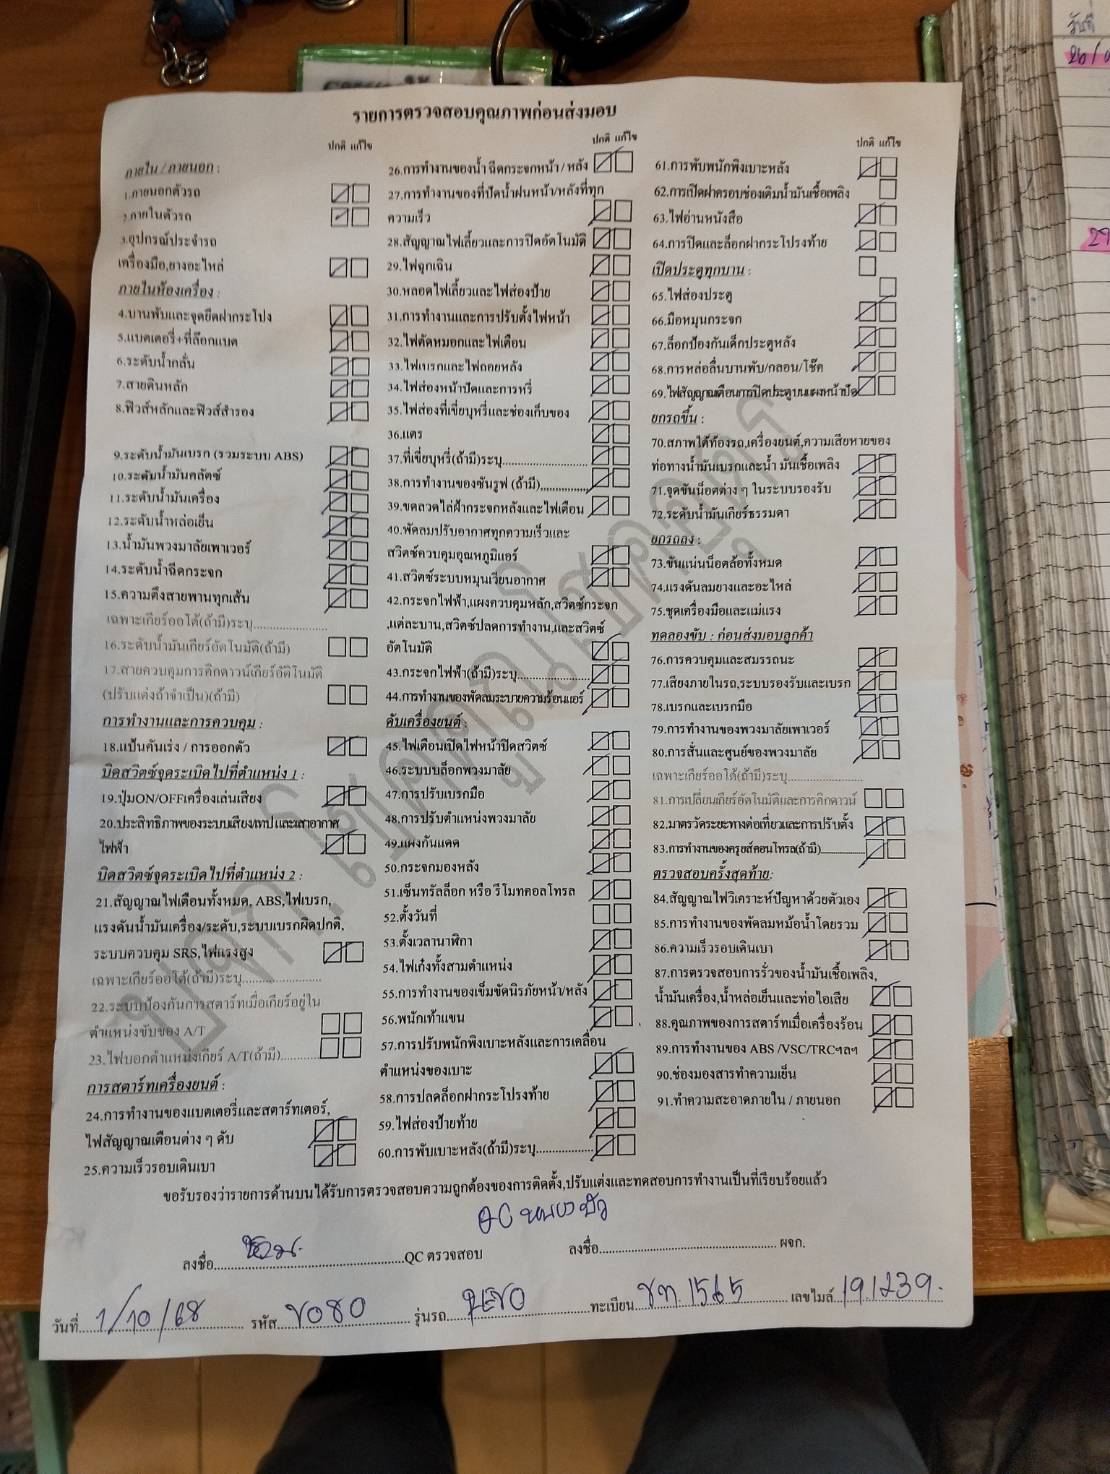 รายการตรวจสอบคุณภาพก่อนส่งมอบ
ปกติ แก้ไข
ภายใน / ภายนอก :
1.ภายนอกตัวรถ
2.ภายในตัวรถ
3.อุปกรณ์ประจำรถ
เครื่องมือ,ยางอะไหล่
ภายในห้องเครื่อง :
4.บานพับและจุดยึดฝากระโปรง
5.แบตเตอรี่+ที่ล๊อกแบต
6.ระดับน้ำกลั่น
7.สายดินหลัก
8.ฟิวส์หลักและฟิวส์สำรอง
9.ระดับน้ำมันเบรก (รวมระบบ ABS)
10.ระดับน้ำมันคลัตช์
11.ระดับน้ำมันเครื่อง
12.ระดับน้ำหล่อเย็น
13.น้ำมันพวงมาลัยเพาเวอร์
14.ระดับน้ำฉีดกระจก
15.ความตึงสายพานทุกเส้น
เฉพาะเกียร์ออโต้(ถ้ามี)ระบุ
16.ระดับน้ำมันเกียร์อัตโนมัติ(ถ้ามี)
17.สายควบคุมการคิกดาวน์เกียร์อัติโนมัติ
(ปรับแต่งถ้าจำเป็น)(ถ้ามี)
การทำงานและการควบคุม :
18.แป้นคันเร่ง / การออกตัว
บิดสวิตซ์จุดระเบิดไปที่ตำแหน่ง 1 :
19.ปุ่มON/OFFเครื่องเล่นเสียง
20.ประสิทธิภาพของระบบเสียง/เทป และเสาอากาศ
ไฟฟ้า
บิดสวิตซ์จุดระเบิดไปที่ตำแหน่ง 2 :
21.สัญญาณไฟเตือนทั้งหมด, ABS,ไฟเบรก,
แรงดันน้ำมันเครื่อง/ระดับ,ระบบเบรกผิดปกติ,
ระบบควบคุม SRS,ไฟแรงสูง
เฉพาะเกียร์ออโต้(ถ้ามี)ระบุ
22.ระบบป้องกันการสตาร์ทเมื่อเกียร์อยู่ใน
ตำแหน่งขับของ A/T
23.ไฟบอกตำแหน่งเกียร์ A/T(ถ้ามี)
การสตาร์ทเครื่องยนต์ :
24.การทำงานของแบตเตอรี่และสตาร์ทเตอร์,
ไฟสัญญาณเตือนต่าง ๆ ดับ
25.ความเร็วรอบเดินเบา
ปกติ แก้ไข
26.การทำงานของน้ำฉีดกระจกหน้า / หลัง
27.การทำงานของที่ปัดน้ำฝนหน้า/หลังที่ทุก
ความเร็ว
28.สัญญาณไฟเลี้ยวและการปิดอัตโนมัติ
29.ไฟฉุกเฉิน
30.หลอดไฟเลี้ยวและไฟส่องป้าย
31.การทำงานและการปรับตั้งไฟหน้า
32.ไฟตัดหมอกและไฟเตือน
33.ไฟเบรกและไฟถอยหลัง
34.ไฟส่องหน้าปัดและการหรี่
35.ไฟส่องที่เขี่ยบุหรี่และช่องเก็บของ
36.แตร
37.ที่เขี่ยบุหรี่(ถ้ามี)ระบุ
38.การทำงานของซันรูฟ (ถ้ามี)
39.ขดลวดไล่ฝ้ากระจกหลังและไฟเตือน
40.พัดลมปรับอากาศทุกความเร็วและ
สวิตช์ควบคุมอุณหภูมิแอร์
41.สวิตช์ระบบหมุนเวียนอากาศ
42.กระจกไฟฟ้า,แผงควบคุมหลัก,สวิตซ์กระจก
แต่ละบาน,สวิตช์ปลดการทำงาน,และสวิตซ์
อัตโนมัติ
43.กระจกไฟฟ้า(ถ้ามี)ระบุ
44.การทำงานของพัดลมระบายความร้อนแอร์
ดับเครื่องยนต์ :
45.ไฟเตือนเปิดไฟหน้าปิดสวิตซ์
46.ระบบบล็อกพวงมาลัย
47.การปรับเบรกมือ
48.การปรับตำแหน่งพวงมาลัย
49.แผงกันแดด
50.กระจกมองหลัง
51.เซ็นทรัลล็อก หรือ รีโมทคอลโทรล
52.ตั้งวันที่
53.ตั้งเวลานาฬิกา
54.ไฟเก๋งทั้งสามตำแหน่ง
55.การทำงานของเข็มขัดนิรภัยหน้า/หลัง
56.พนักเท้าแขน
57.การปรับพนักพิงเบาะหลังและการเคลื่อน
ตำแหน่งของเบาะ
58.การปลดล็อกฝากระโปรงท้าย
59.ไฟส่องป้ายท้าย
60.การพับเบาะหลัง(ถ้ามี)ระบุ
ปกติ แก้ไข
61.การพับพนักพิงเบาะหลัง
62.การเปิดฝาครอบช่องเติมน้ำมันเชื้อเพลิง
63.ไฟอ่านหนังสือ
64.การปิดและล็อกฝากระโปรงท้าย
เปิดประตูทุกบาน :
65.ไฟส่องประตู
66.มือหมุนกระจก
67.ล็อกป้องกันเด็กประตูหลัง
68.การหล่อลื่นบานพับ/กลอน/โช๊ค
69.ไฟสัญญาณเตือนการปิดประตูบนแผงหน้าปัด
ยกรถขึ้น :
70.สภาพใต้ท้องรถ,เครื่องยนต์,ความเสียหายของ
ท่อทางน้ำมันเบรกและน้ำมันเชื้อเพลิง
71.จุดขันน็อตต่าง ๆ ในระบบรองรับ
72.ระดับน้ำมันเกียร์ธรรมดา
ยกรถลง :
73.ขันแน่นน็อตล้อทั้งหมด
74.แรงดันลมยางและอะไหล่
75.ชุดเครื่องมือและแม่แรง
ทดลองขับ : ก่อนส่งมอบลูกค้า
76.การควบคุมและสมรรถนะ
77.เสียงภายในรถ,ระบบรองรับและเบรก
78.เบรกและเบรกมือ
79.การทำงานของพวงมาลัยเพาเวอร์
80.การสั่นและศูนย์ของพวงมาลัย
เฉพาะเกียร์ออโต้(ถ้ามี)ระบุ
81.การเปลี่ยนเกียร์อัตโนมัติและการคิกดาวน์
82.มาตรวัดระยะทางต่อเที่ยวและการปรับตั้ง
83.การทำงานของครุยส์คอนโทรล(ถ้ามี)
ตรวจสอบครั้งสุดท้าย:
84.สัญญาณไฟวิเคราะห์ปัญหาด้วยตัวเอง
85.การทำงานของพัดลมหม้อน้ำโดยรวม
86.ความเร็วรอบเดินเบา
87.การตรวจสอบการรั่วของน้ำมันเชื้อเพลิง,
น้ำมันเครื่อง,น้ำหล่อเย็นและท่อไอเสีย
88.คุณภาพของการสตาร์ทเมื่อเครื่องร้อน
89.การทำงานของ ABS /VSC/TRCฯลฯ
90.ช่องมองสารทำความเย็น
91.ทำความสะอาดภายใน / ภายนอก
ขอรับรองว่ารายการด้านบนได้รับการตรวจสอบความถูกต้องของการติดตั้ง,ปรับแต่งและทดสอบการทำงานเป็นที่เรียบร้อยแล้ว
QC หนองบัว
ลงชื่อ QC ตรวจสอบ ลงชื่อ ผจก.
วันที่ 1/10/68 รหัส ข080 รุ่นรถ ทะเบียน ขท 1565 เลขไมล์ 191239.
วันที่